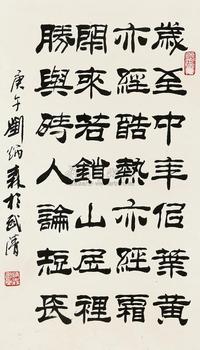 歲至中年佀葉黃
亦經酷熱亦經霜
閑來若鎖山居裡
勝與時人論短長
庚午劉炳森於武清